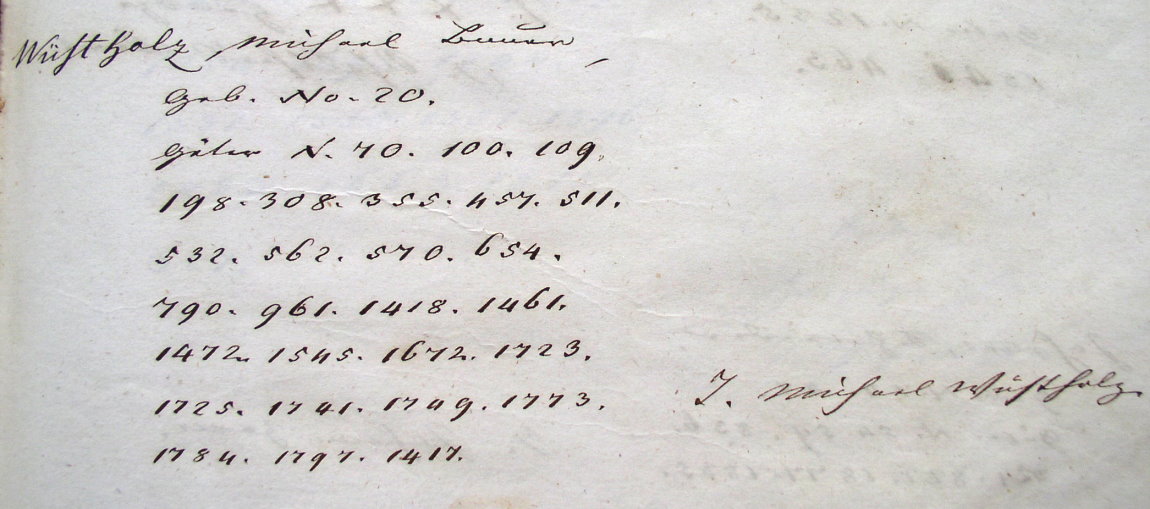 Wüstholz Michael Bauer,
Geb. No. 20.
Güter N. 70. 100. 109.
198. 308. 355. 457. 511.
532. 562. 570. 654.
790. 961. 1418. 1461.
1472. 1545. 1672. 1723.
1725. 1741. 1749. 1773.
J. Michael Wüstholz
1784. 1797. 1417.